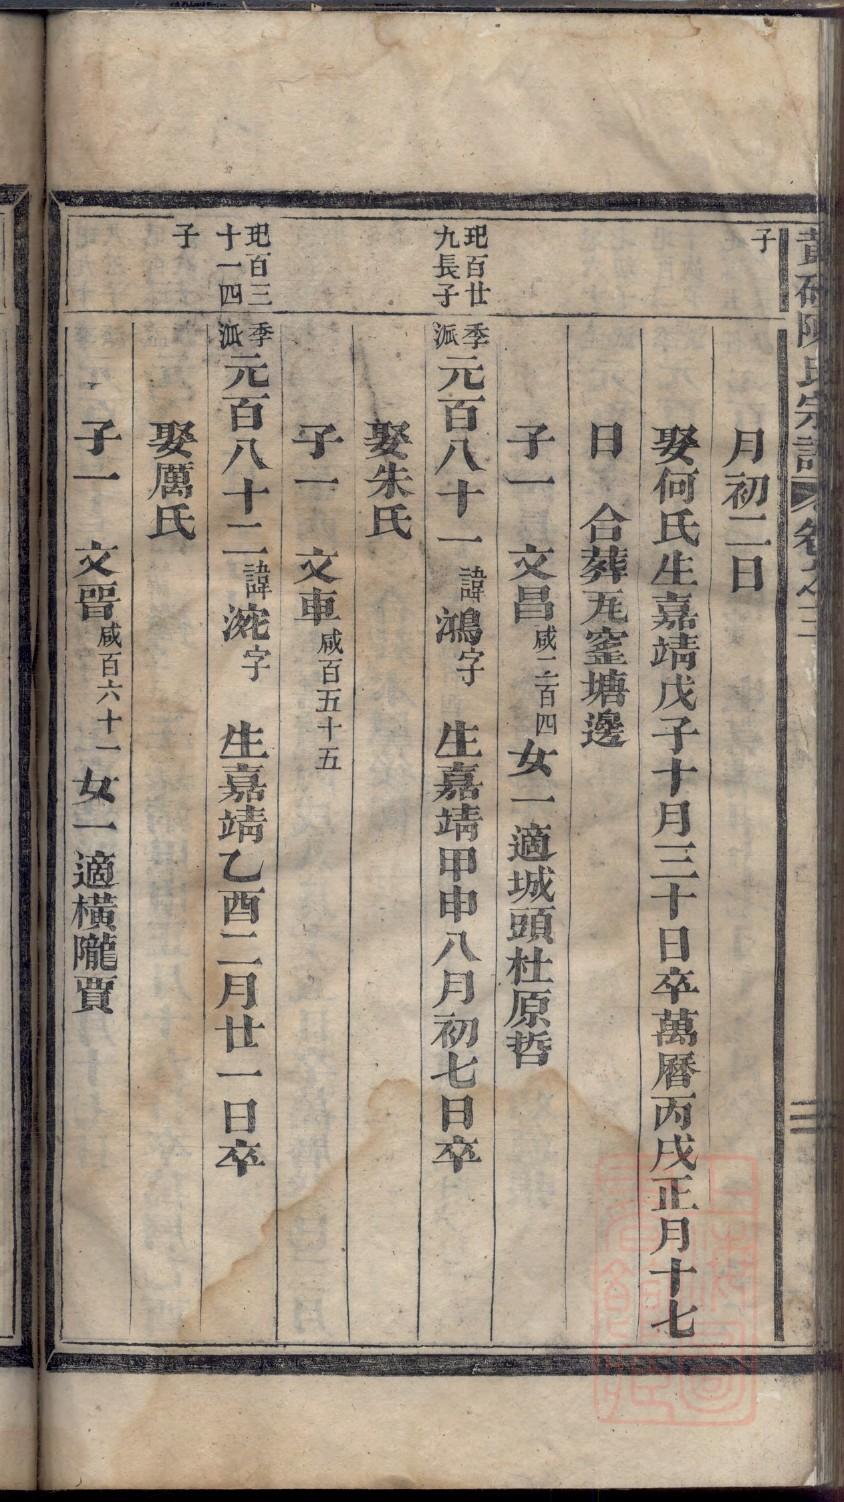 陳氏宗譜 卷之三
子
月初二日
娶何氏生嘉靖戊子十月三十日卒萬曆丙戌正月十七
日 合葬瓦窰塘邊
子一 文昌咸二百四女一適城頭杜原哲
玘百廿
九長子
季派元百八十一諱鴻字 生嘉靖甲申八月初七日卒
娶朱氏
子一 文車咸百五十五
玘百三
十一四
子
季派元百八十二諱𣵠字 生嘉靖乙酉二月廿一日卒
娶厲氏
子一 文晉咸百六十一女一適橫隴賈